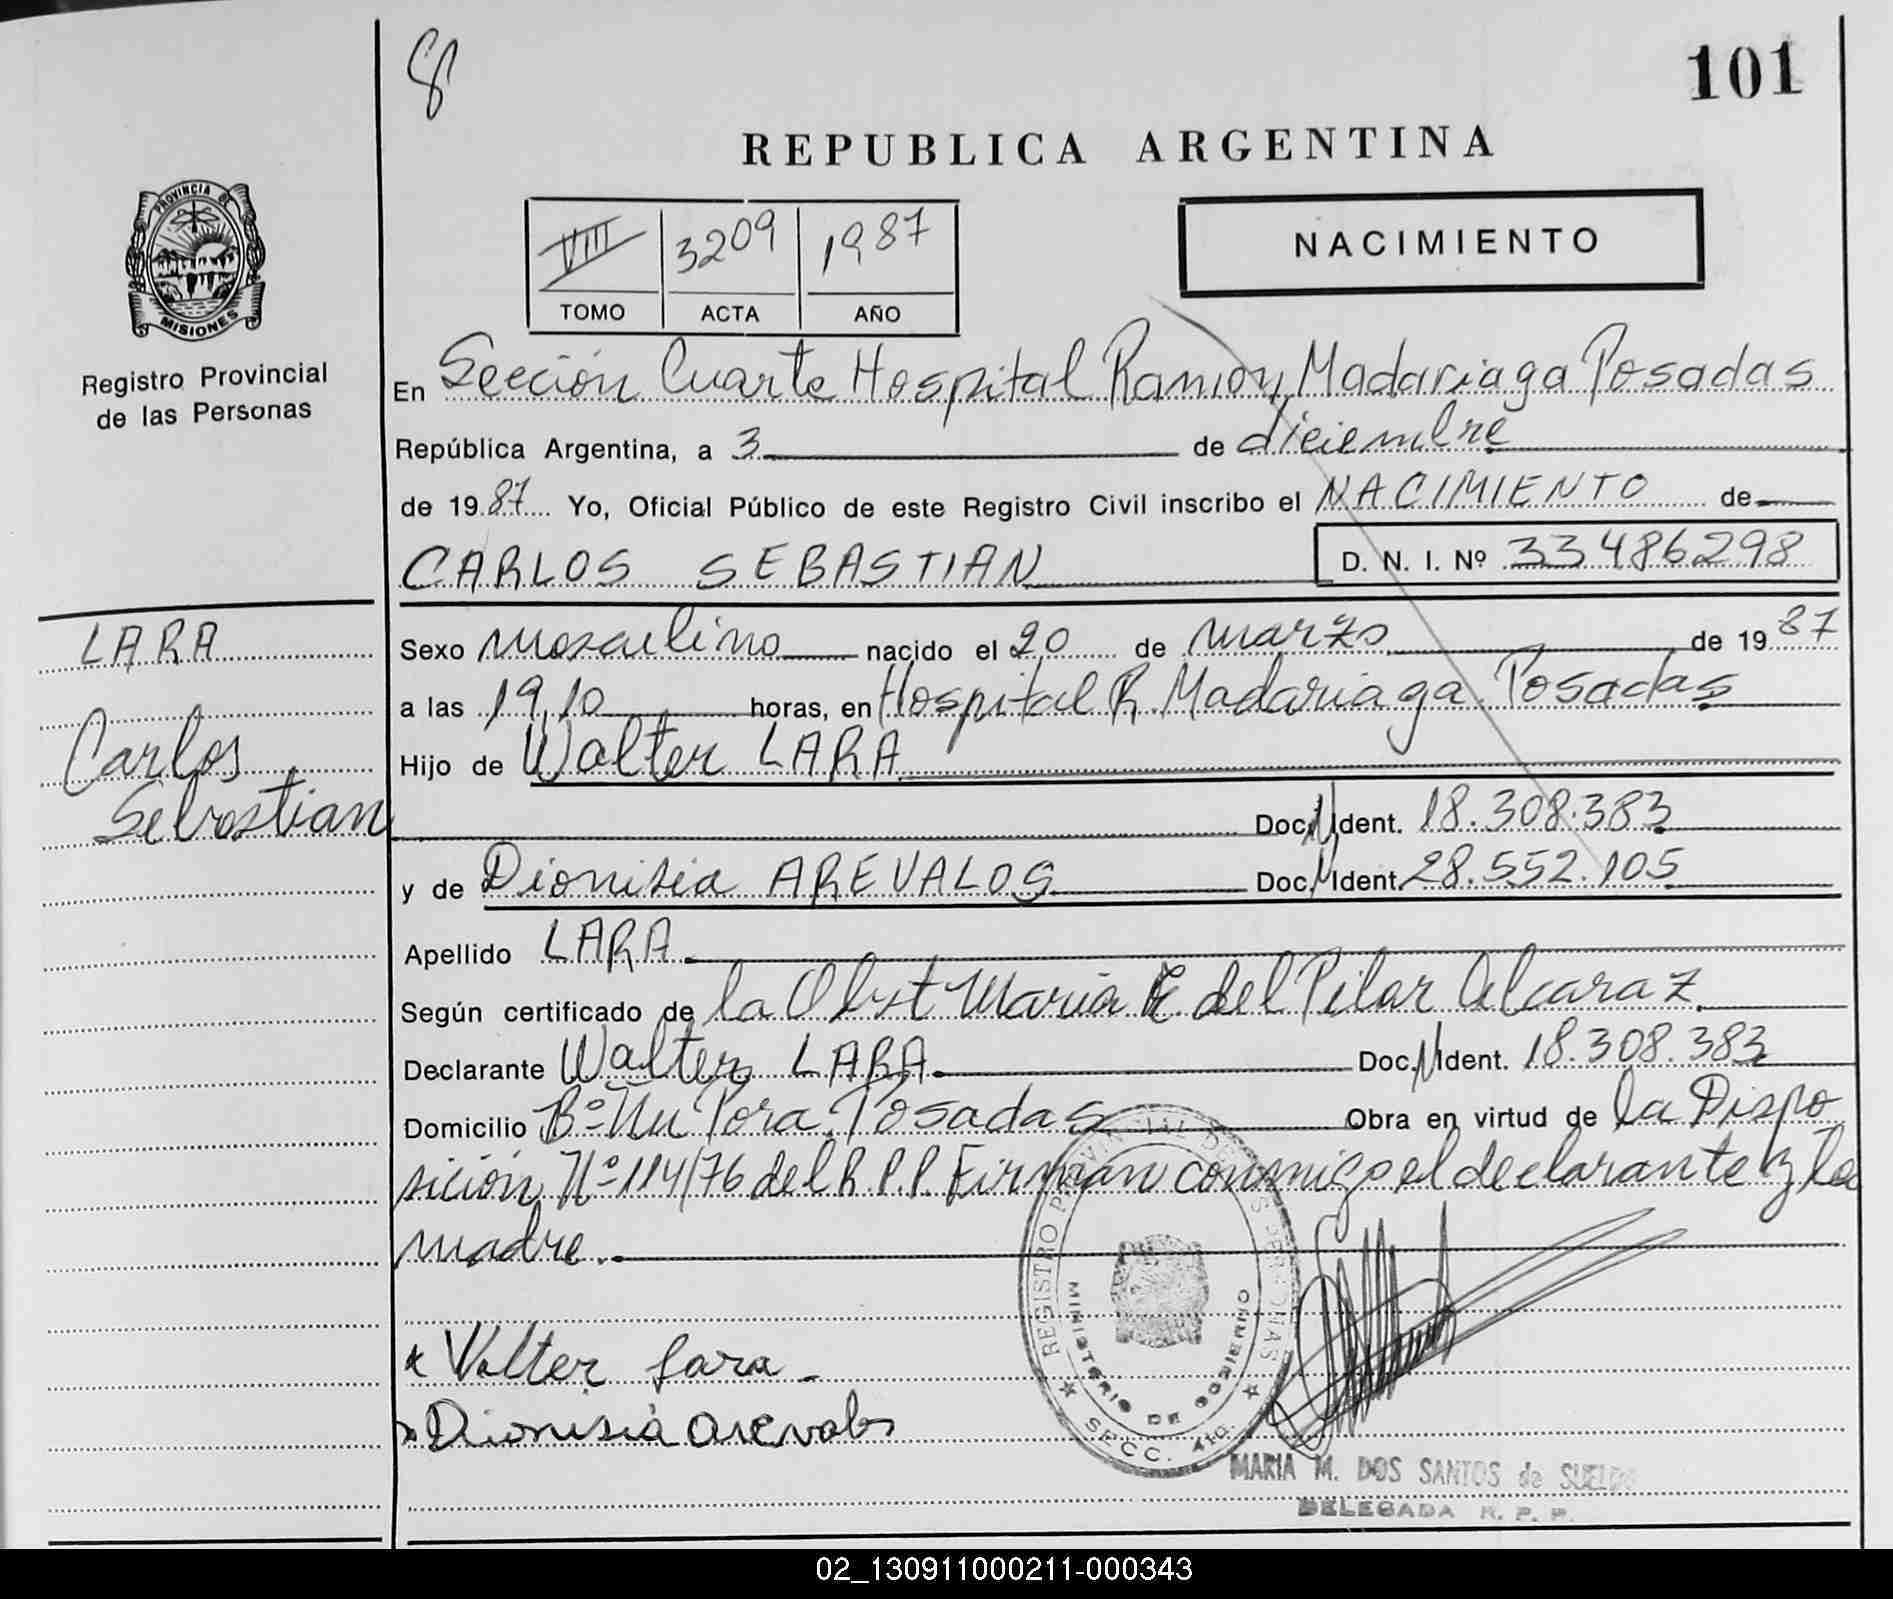 8
101
REPUBLICA ARGENTINA
VIII 3209 1987
TOMO ACTA AÑO
NACIMIENTO
PROVINCIA DE
MISIONES
Registro Provincial
de las Personas
En Sección Cuarta Hospital Ramon Madariaga Posadas
República Argentina, a 3 de diciembre
de 1987 Yo, Oficial Público de este Registro Civil inscribo el NACIMIENTO de
CARLOS SEBASTIAN D. N. I. Nº 33486298
LARA
Carlos
Sebastian
Sexo masculino nacido el 20 de marzo de 1987
a las 19,10 horas, en Hospital R. Madariaga. Posadas
Hijo de Walter LARA
Doc. N Ident. 18.308.383
y de Dionisia AREVALOS Doc. N Ident. 28.552.105
Apellido LARA
Según certificado de la Obst Maria E. del Pilar Alcaraz
Declarante Walter LARA Doc. N Ident. 18.308.383
Domicilio Bº Ñu Pora. Posadas Obra en virtud de la Dispo
sición Nº 114/76 del R.P.P. Firman conmigo el declarante y la
madre.
Walter Lara
Dionisia Arevalos
REGISTRO PROVINCIAL DE LAS PERSONAS
MINISTERIO DE GOBIERNO
SECC. 4ta.
MARIA M. DOS SANTOS de SUELDO
DELEGADA R. P. P.
02_130911000211-000343